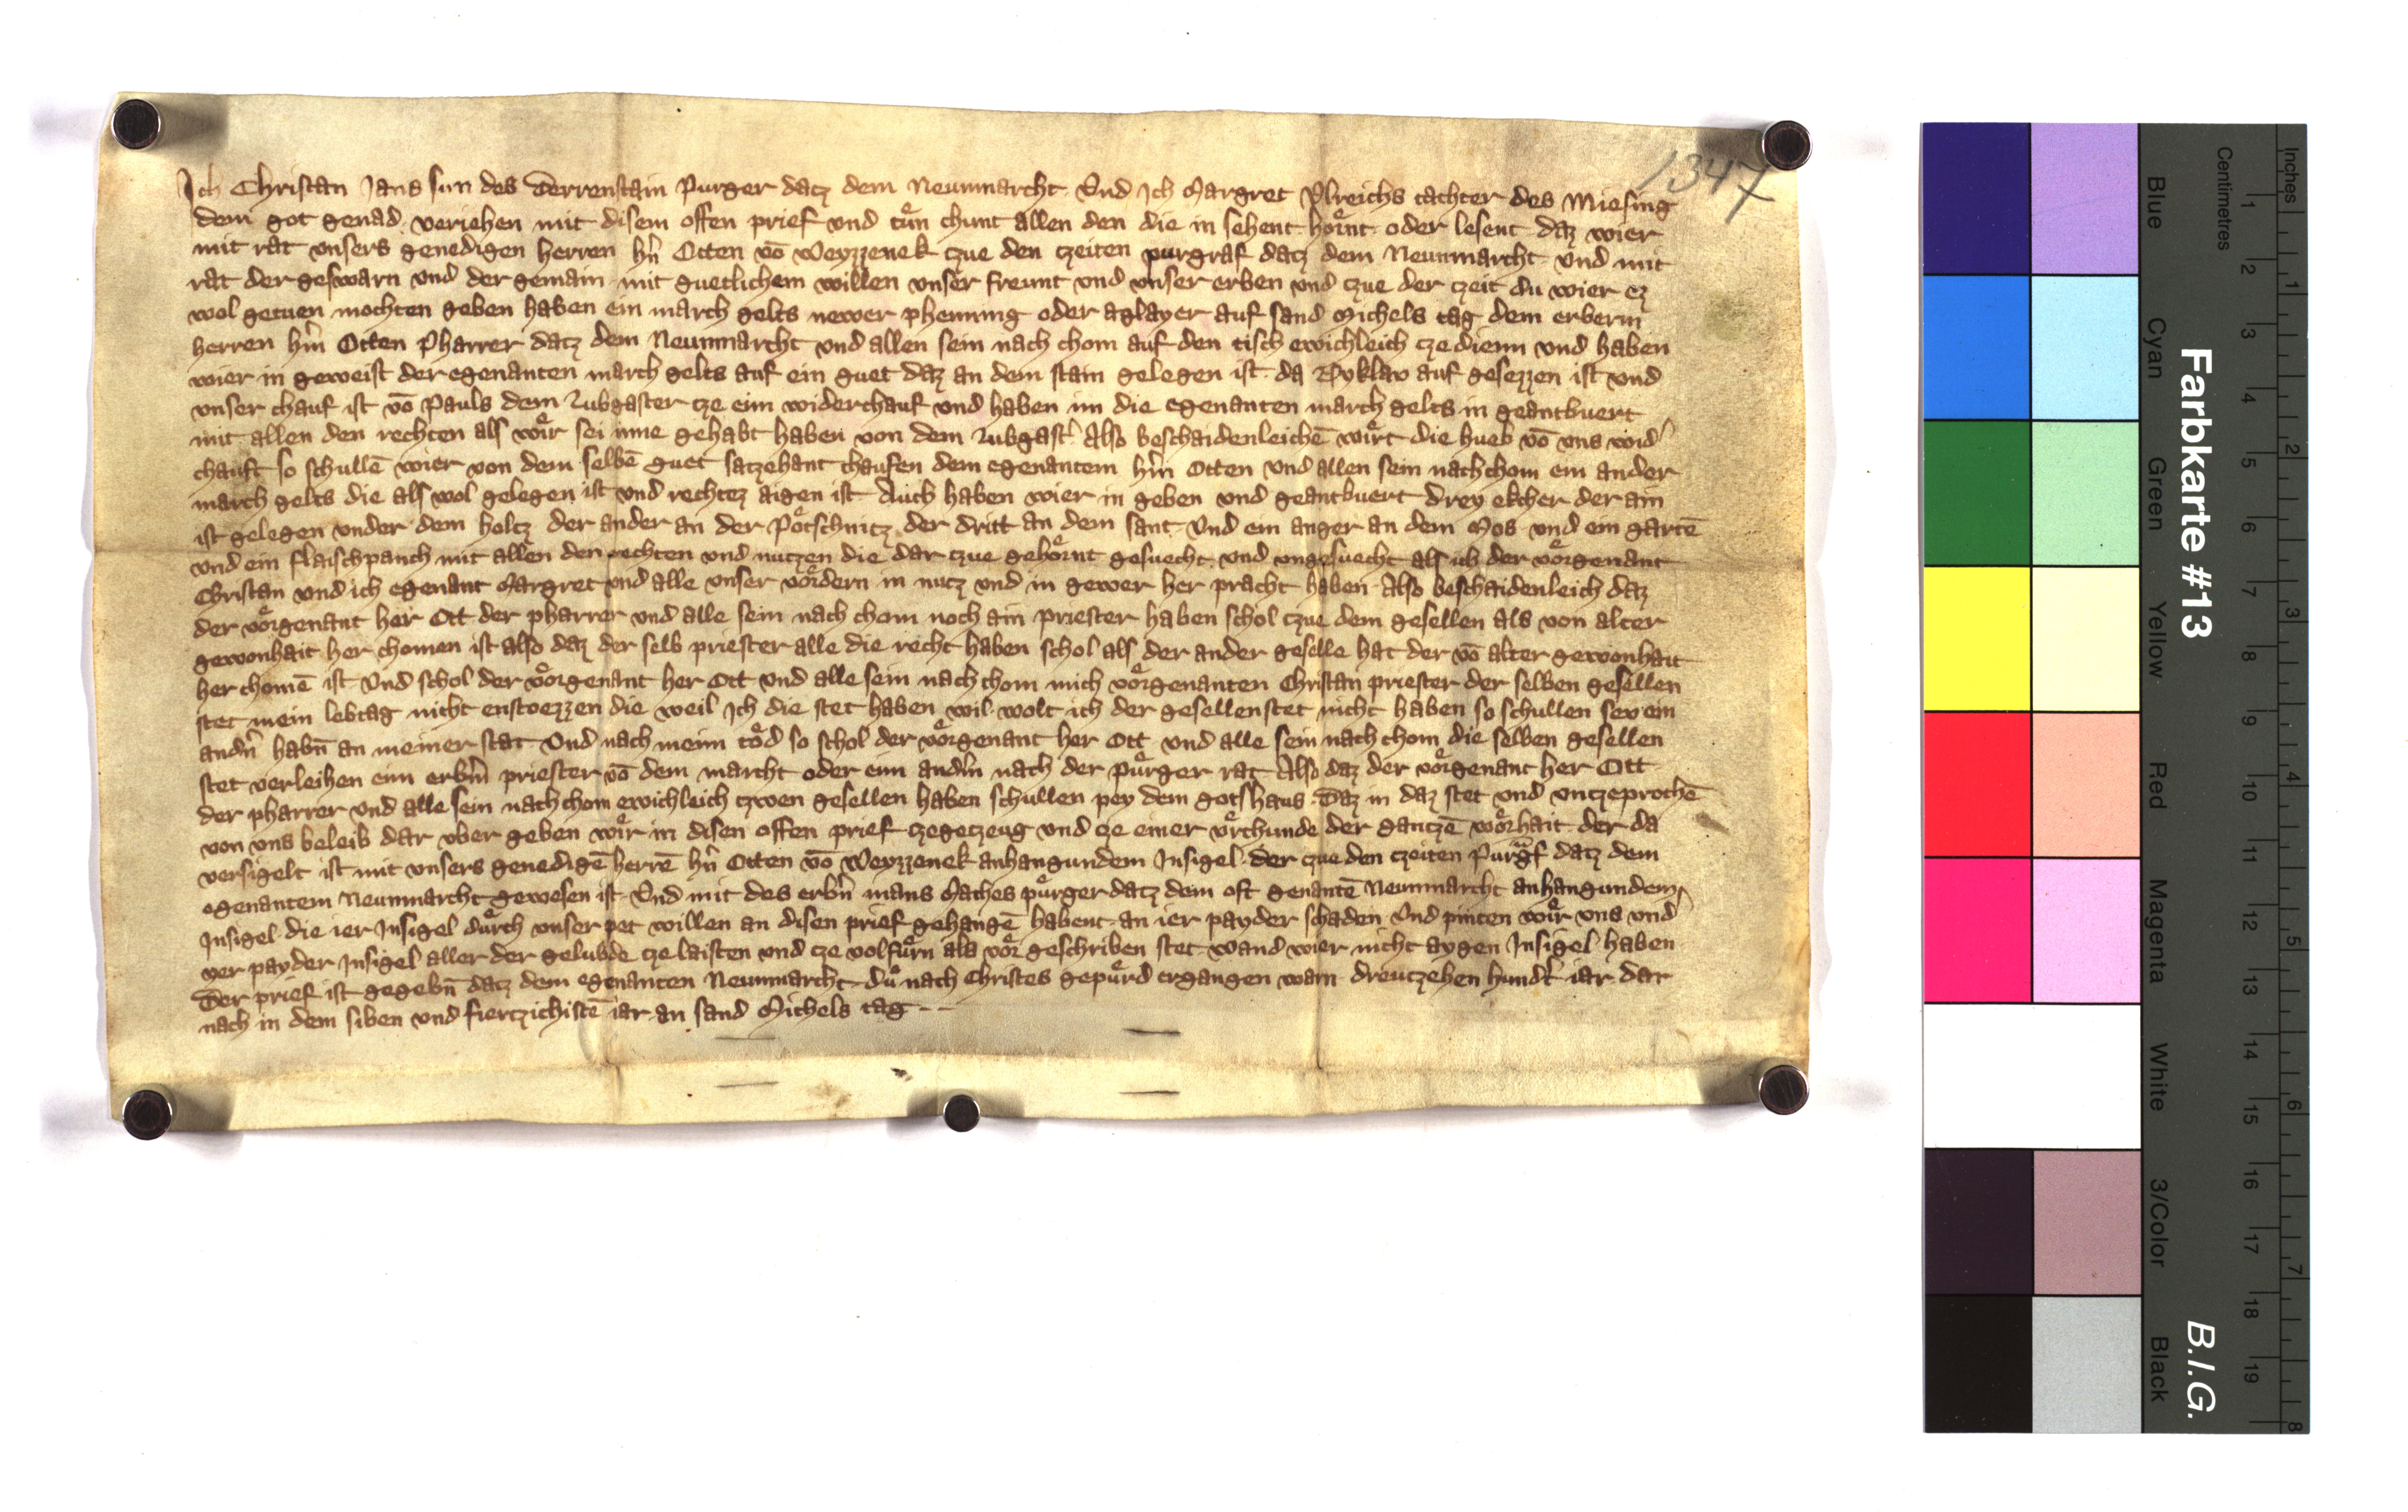 1347
Ich Christan Jans sun des Derrenstain Purger datz dem Neunmarcht Vnd Ich Margret Vlreichs tachter des Miesing
dem got genad veriehen mit disem offen prief vnd tůn chunt allen den die in sehent hoͤrnt oder lesent daz wier
mit rat vnsers genedigen herren hn̄ Otten vō Weyzzenek czue den czeiten purgraf datz dem Neunmarcht vnd mit
rat der geswarn vnd der gemain mit guetlichem willen vnser freunt vnd vnser erben vnd czue der czeit du wier ez
wol getuen mochten geben haben ein march gelts newer phenning oder aglayer auf sand Michels tag dem erberm
herren hn̄ Otten Pharrer datz dem Neunmarcht vnd allen sein nach chom auf den tisch ewichleich cze dienn vnd haben
wier in geweist der egenanten march gelts auf ein guet daz an dem stain gelegen ist da auf gesezzen ist vnd
vnser chauf ist vō Pauls dem Lubgaster cze eim widerchauf vnd haben im die egenanten march gelts in geantburt
mit allen den rechten als wiͤr sei inne gehabt haben von dem Lubgast' Also beschaidenleichē wiͤrt die hueb vō vns wid'
chauft so schullē wier von dem selbē guet satzehant chaufen dem egenantem hn̄ Otten vnd allen sein nachchom ein ander
march gelts die als wol gelegen ist vnd rechtez aigen ist Auch haben wier in geben vnd geantburt drey ekcher der ain
ist gelegen vnder dem holtz der ander an der Poͤtschnitz der dritt an dem sant Vnd ein anger an dem Mos vnd ein gartē
vnd ein flaischpanch mit allen den rechten vnd nutzen die dar czue gehoͤrnt gesuecht vnd vngesuecht als ich der voͤrgenant
Christan vnd ich egenant Margret vnd alle vnser voͤrdern in nutz vnd in gewer her pracht haben Also beschaidenleich daz
der voͤrgenant her Ott der pharrer vnd alle sein nach chom noch ain priester haben schol czue dem gesellen als von alter
gewonhait her chomen ist also daz der selb priester alle die recht haben schol als der ander geselle hat der vō alter gewonhait
her chomē ist Vnd schol der voͤrgenant her Ott vnd alle sein nach chom mich voͤrgenanten Christan priester der selben gesellen
stet mein lebtag nicht enstoezzen die weil Ich die stet haben wil wolt ich der gesellen stet nicht haben so schullen sew ein
andn̄ habn̄ an meiner stat Vnd nach meim toͤd so schol der voͤrgenant her Ott vnd alle sein nach chom die selben gesellen
stet verleihen eim erbm̄ priester vō dem marcht oder eim andm̄ nach der puͤrger rat Also daz der voͤrgenant her Ott
der pharrer vnd alle sein nach chom ewichleich czwen gesellen haben schullen pey dem gotshaus Daz in daz stet vnd vntzeprochē
von vns beleib dar vber geben wiͤr in disen offen prief czegetzeug vnd cze einer vͤrchunde der gantzē woͤrhait der da
versigelt ist mit vnsers genedigē herrē hn̄ Otten vō Weyzzenek anhangundem Insigel der czue den czeiten Purgf datz dem
egenantem Neunmarcht gewesen ist Vnd mit des erbn̄ mans Maches puͤrger datz dem oft genantē Neunmarcht anhangundem
Insigel die ier Insigel duͤrch vnser pet willen an disen prief gehangē habent an ier payder schaden Vnd pinten wiͤr vns vnd'
ver payder Insigel aller der gelubde cze laisten vnd cze volfuͤrn als voͤr geschriben stet wand wier nicht aygen Insigel haben
Der prief ist gegebn̄ datz dem egenanten Neunmarcht Dů nach Christes gepuͤrd ergangen warn dreutzehen hundt' iar dar
nach in dem siben vnd fiertzichistē iar an sand Michels tag
Farbkarte #13
B.I.G.
Blue Cyan Green Yellow Red Magenta White 3/Color Black
Centimetres
1 2 3 4 5 6 7 8 9 10 11 12 13 14 15 16 17 18 19
Inches
1 2 3 4 5 6 7 8